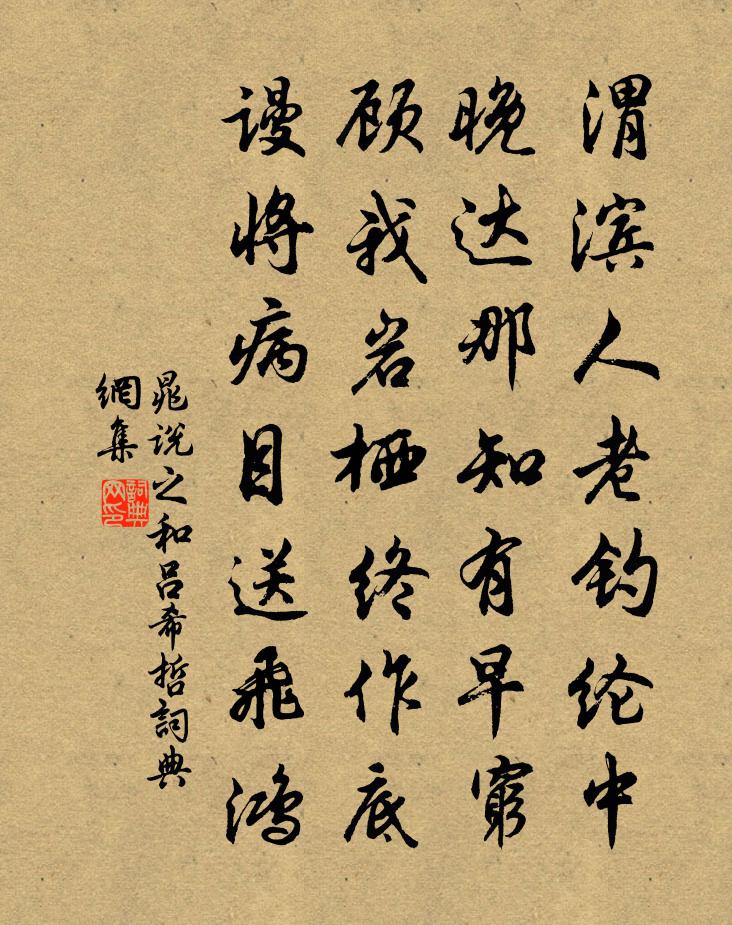 渭滨人老钓纶中
晚达那知有早窮
顾我岩栖终作底
谩将病目送飛鸿
晁说之和吕希哲詞典
網集
詞典
网印